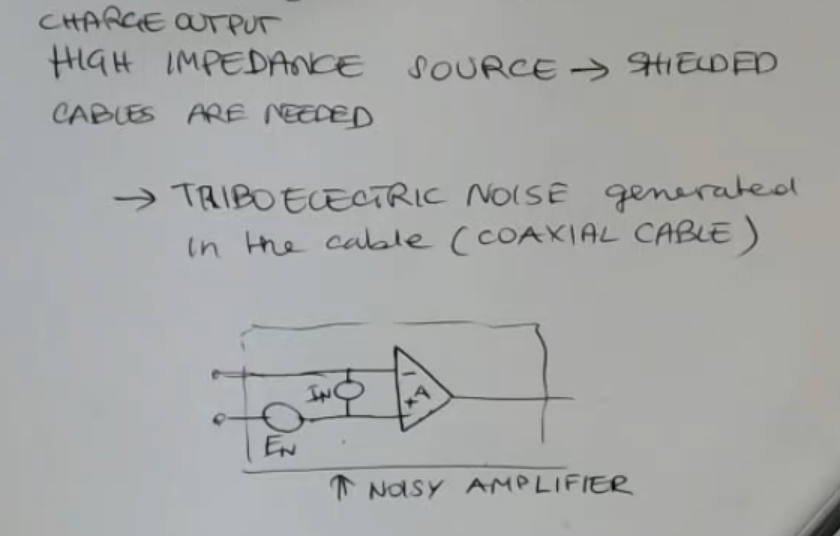 CHARGE OUTPUT
HIGH IMPEDANCE SOURCE → SHIELDED
CABLES ARE NEEDED
→ TRIBOELECTRIC NOISE generated
in the cable (COAXIAL CABLE)
IN
- 
+ A
EN
↑ NOISY AMPLIFIER